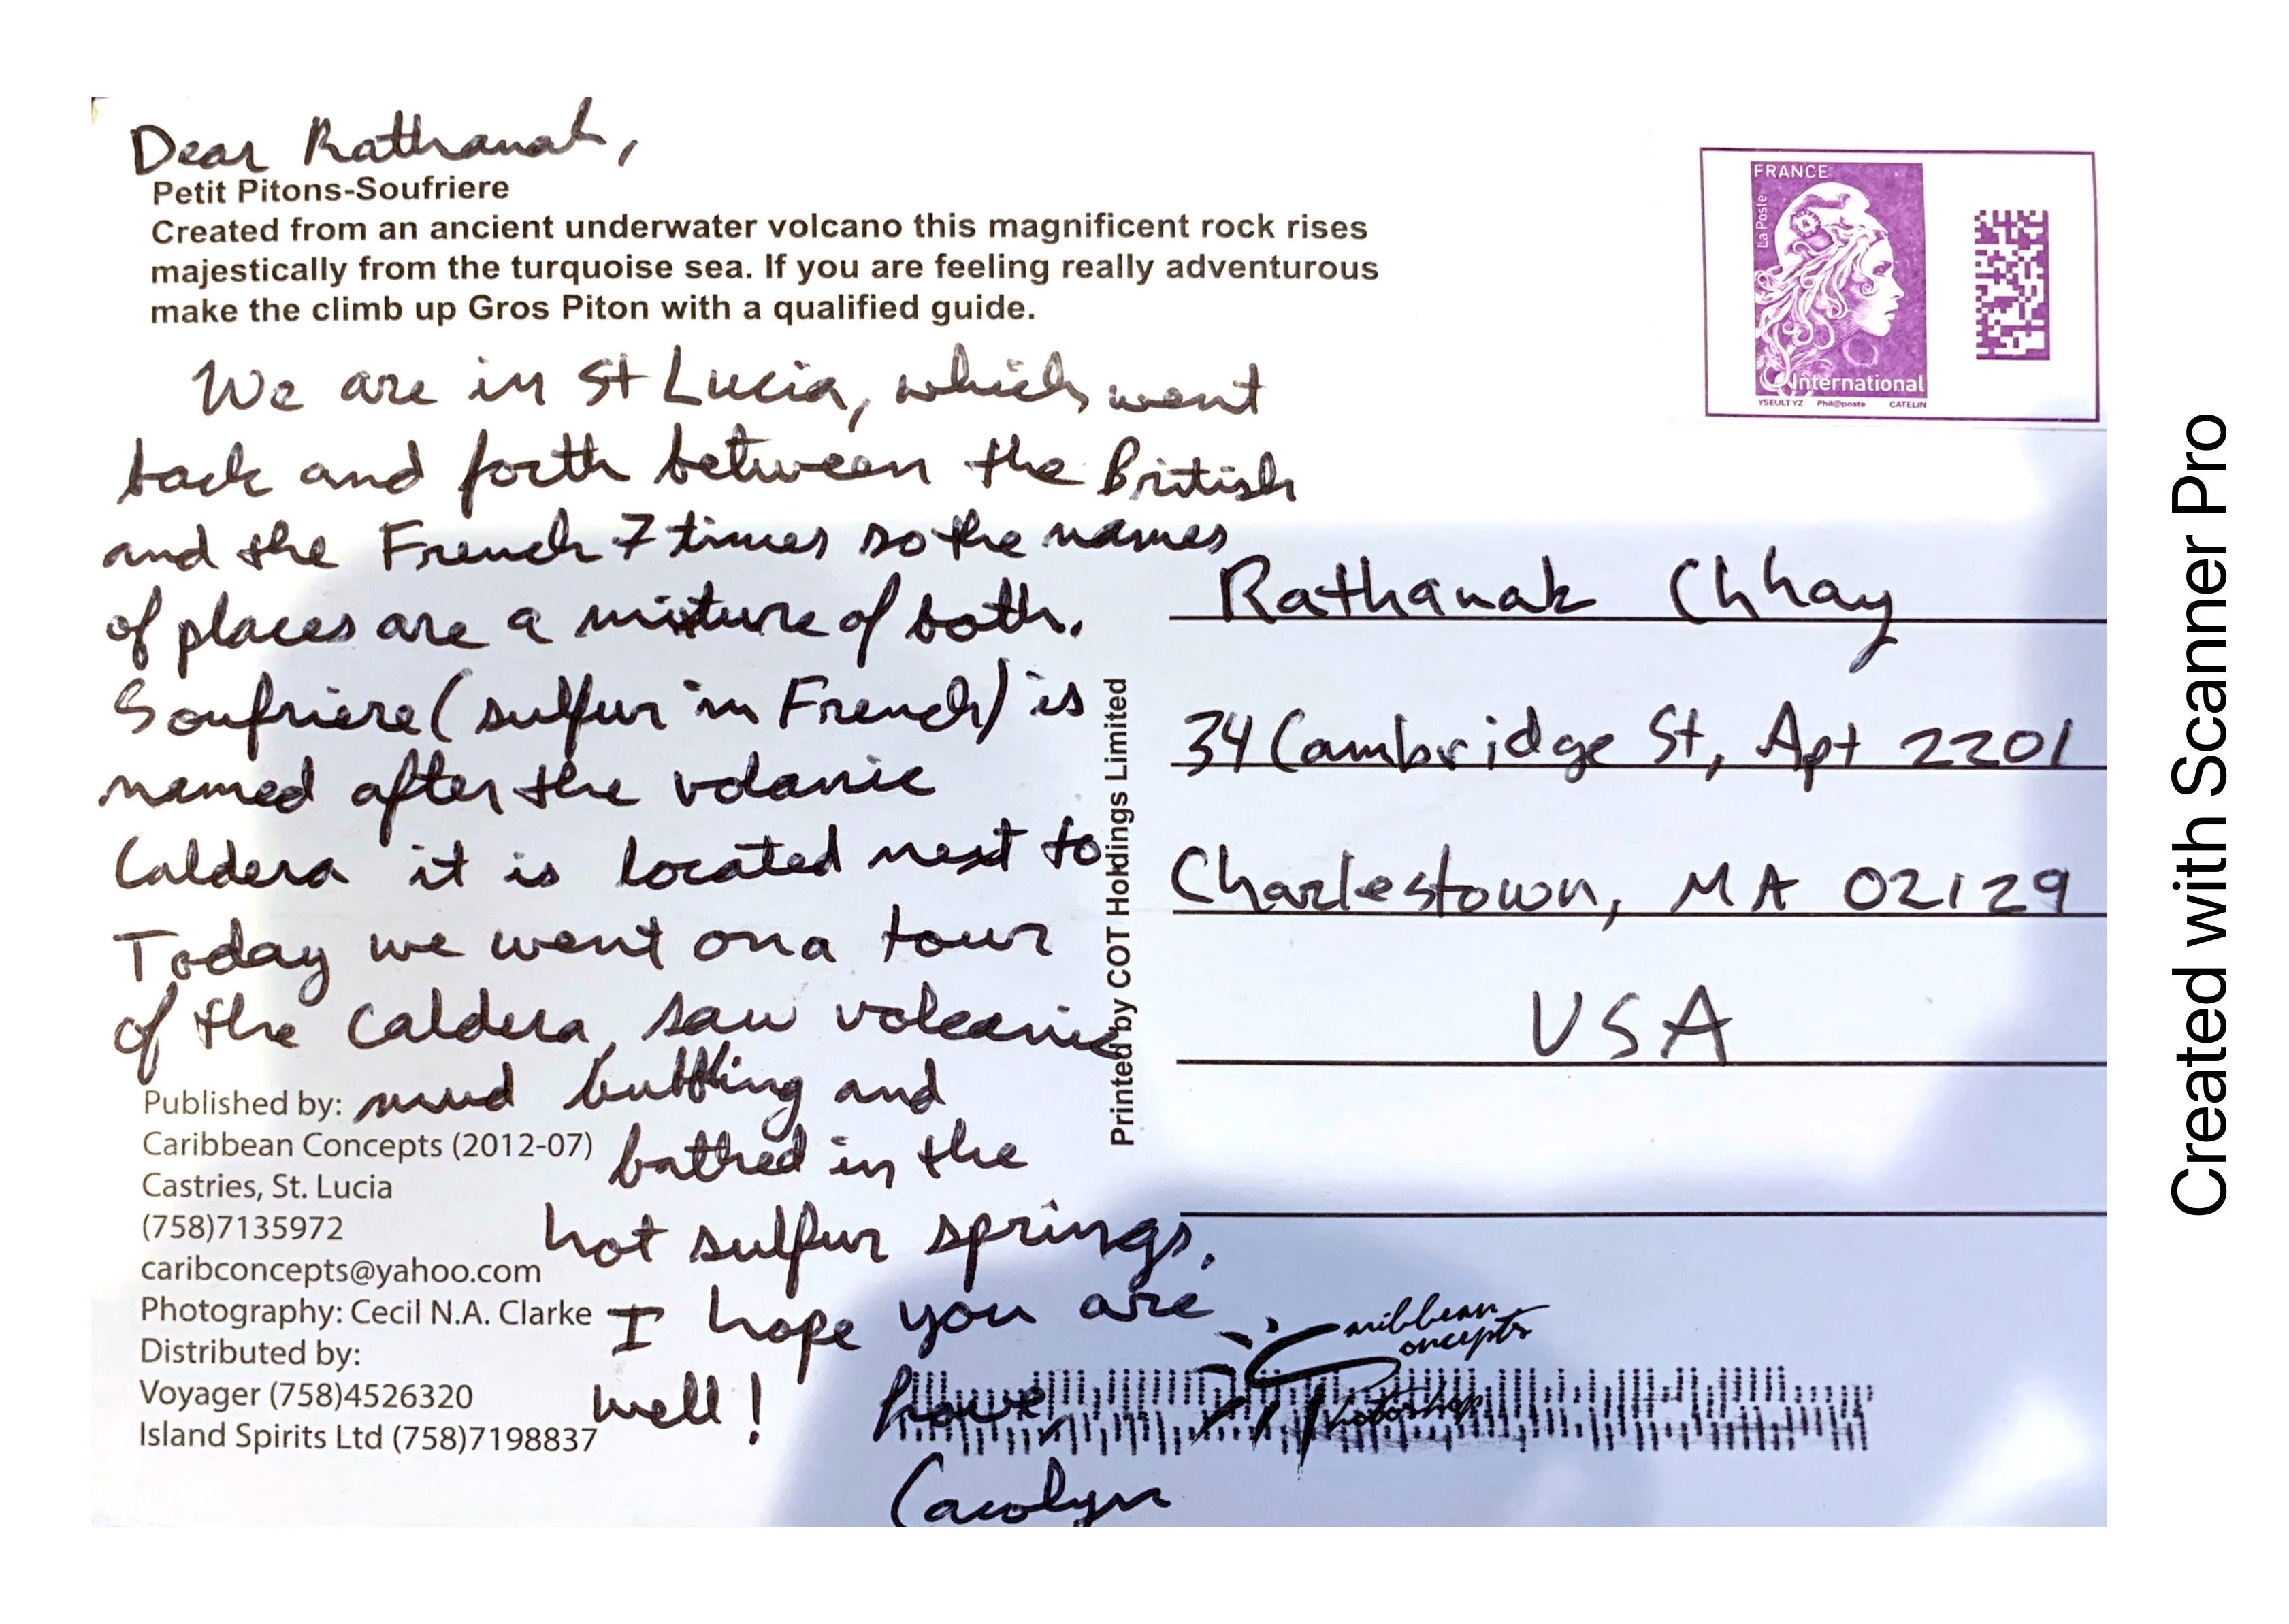 Dear Rathanak,
Petit Pitons-Soufriere
Created from an ancient underwater volcano this magnificent rock rises
majestically from the turquoise sea. If you are feeling really adventurous
make the climb up Gros Piton with a qualified guide.
We are in St Lucia, which went
back and forth between the British
and the French 7 times so the names
of places are a mixture of both.
Soufriere (sulfur in French) is
named after the volanic
Caldera it is located next to
Today we went on a tour
of the Caldera, saw volcanic
mud bubbling and
bathed in the
hot sulfur springs.
I hope you are
well!
Carolyn
Published by:
Caribbean Concepts (2012-07)
Castries, St. Lucia
(758)7135972
caribconcepts@yahoo.com
Photography: Cecil N.A. Clarke
Distributed by:
Voyager (758)4526320
Island Spirits Ltd (758)7198837
Printed by COT Holdings Limited
FRANCE
La Poste
International
YSEULT YZ Phil@poste CATELIN
Rathanak Chhay
34 Cambridge St, Apt 2201
Charlestown, MA 02129
USA
Caribbean
Concepts
Photoshop
Created with Scanner Pro